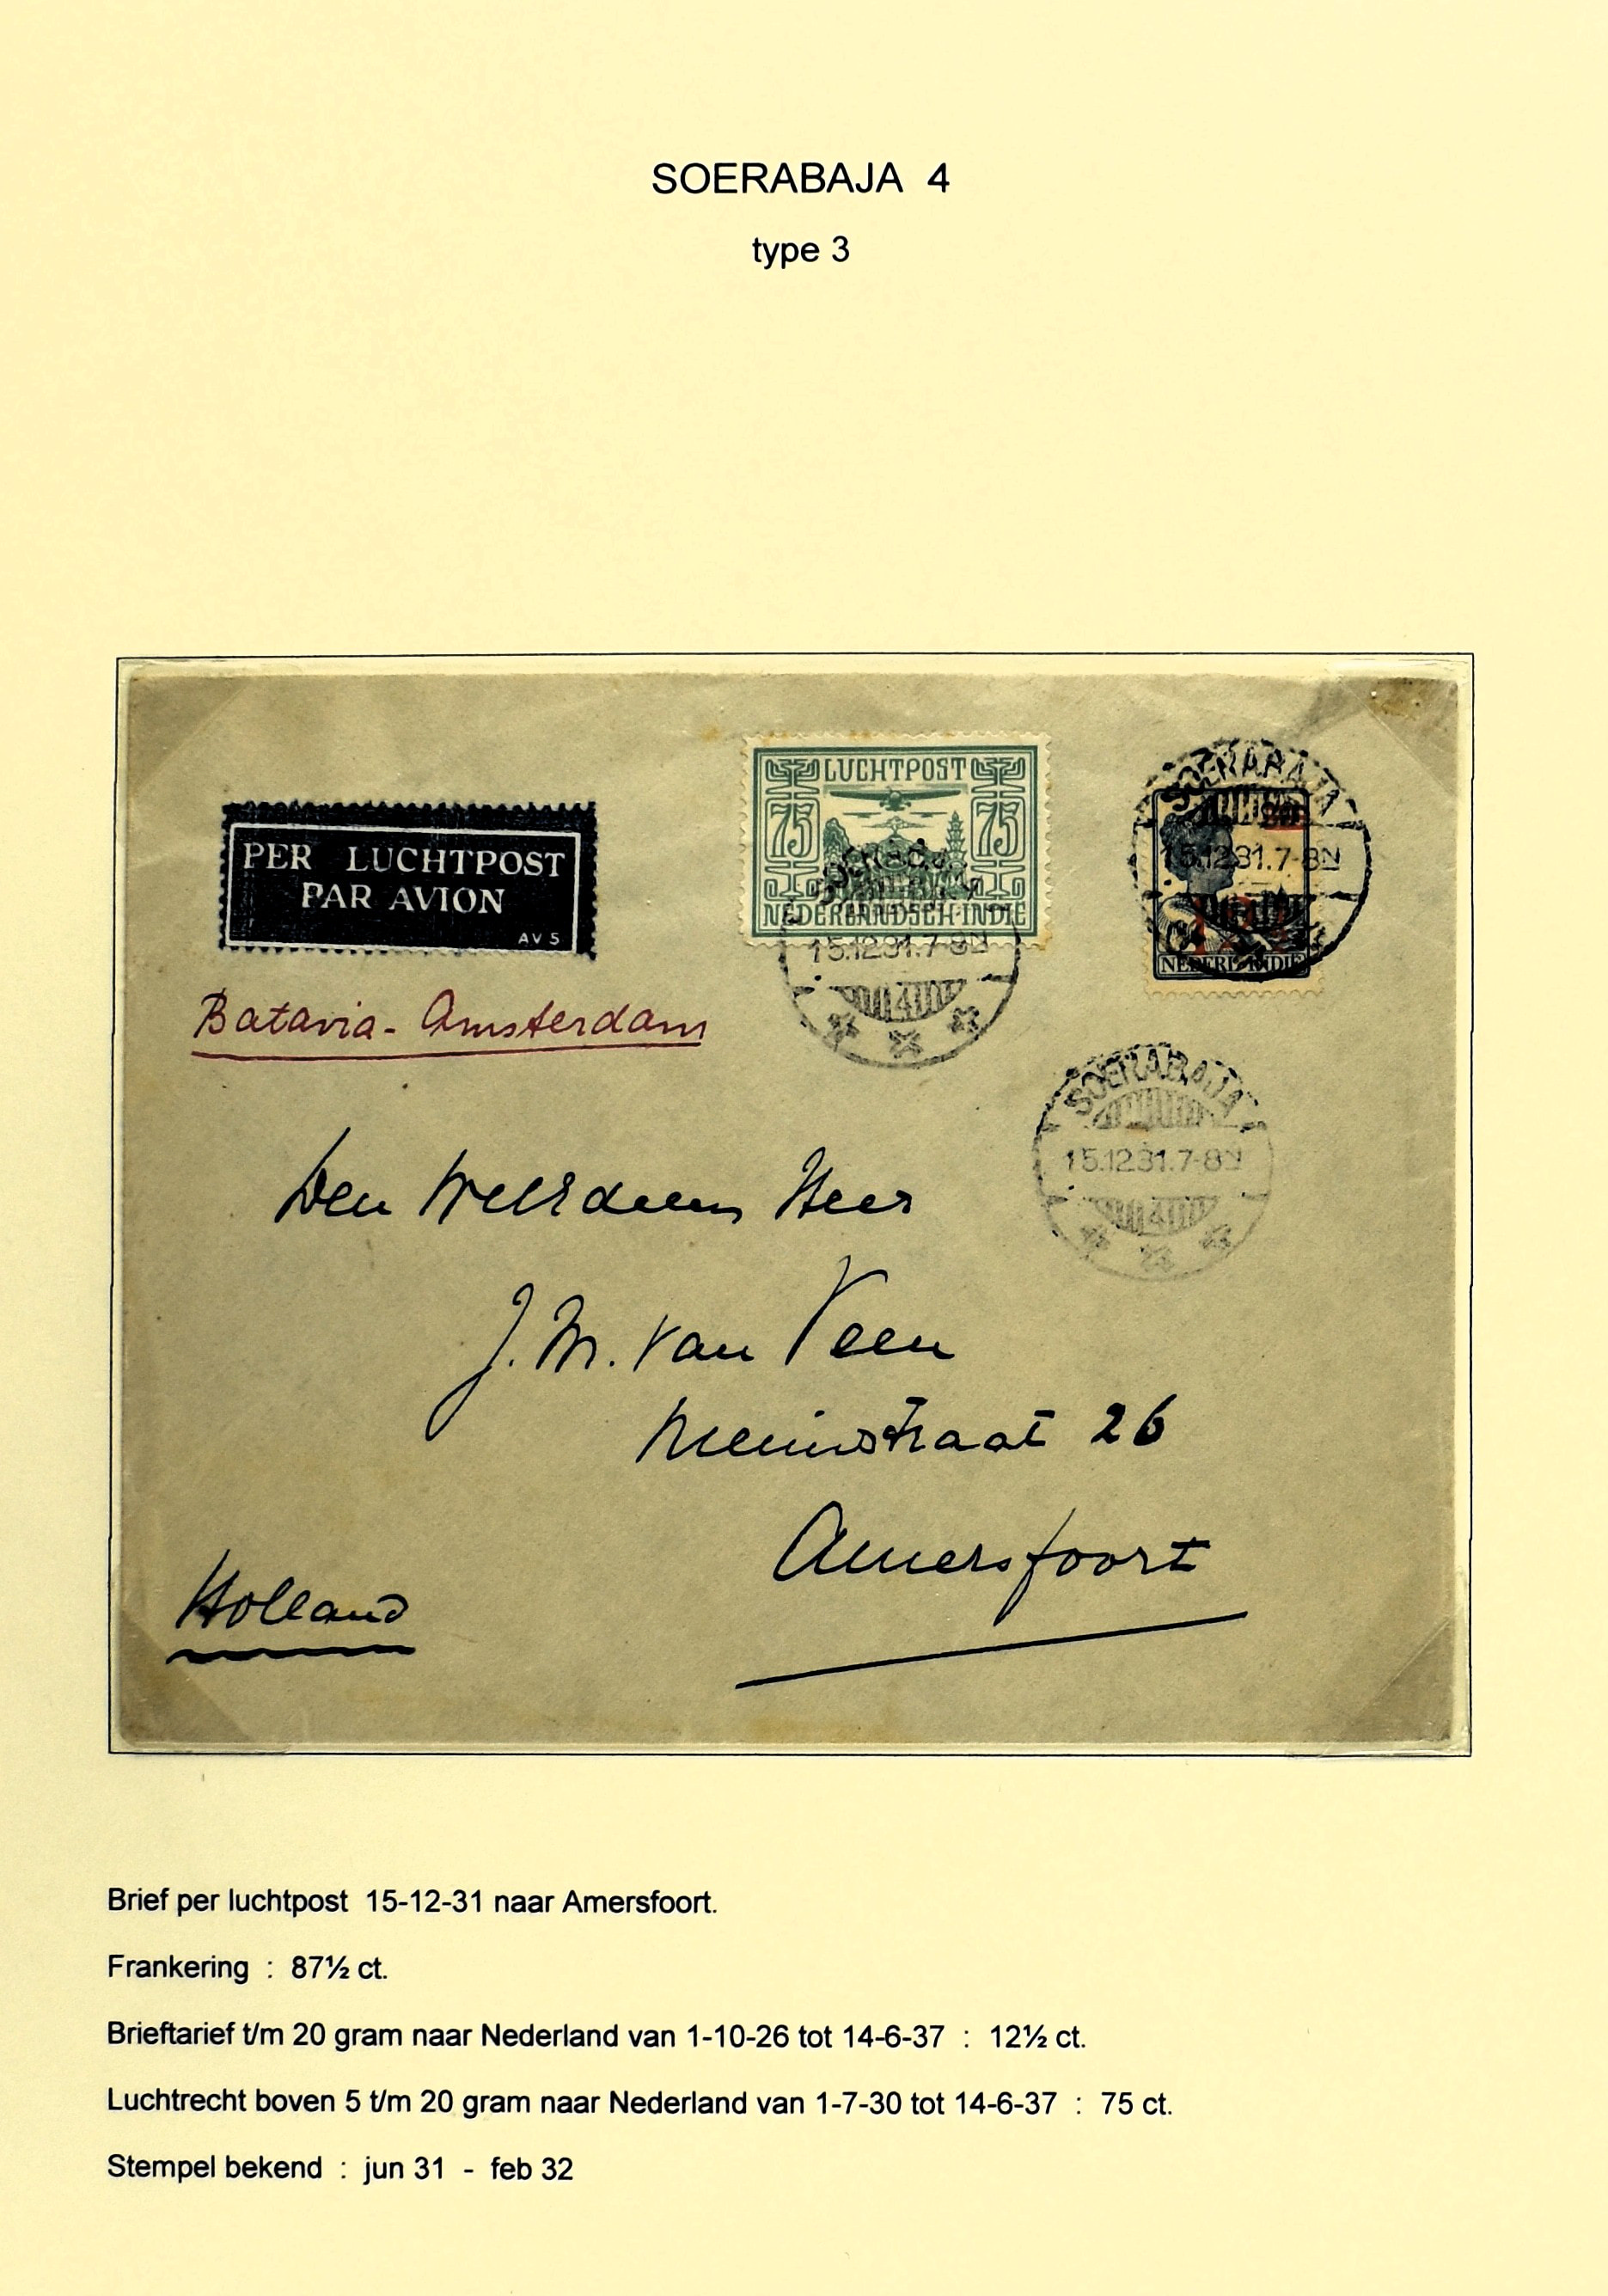 SOERABAJA 4
type 3
LUCHTPOST
75 75
NEDERLANDSCH-INDIE
15.12.31.7-8N
4
SOERABAJA
15.12.31.7-8N
NEDERL. INDIE
PER LUCHTPOST
PAR AVION
AV 5
Batavia - Amsterdam
SOERABAJA
15.12.31.7-8N
4
Den Heer
J. M. van Veen
26
Amersfoort
Holland
Brief per luchtpost 15-12-31 naar Amersfoort.
Frankering : 87½ ct.
Brieftarief t/m 20 gram naar Nederland van 1-10-26 tot 14-6-37 : 12½ ct.
Luchtrecht boven 5 t/m 20 gram naar Nederland van 1-7-30 tot 14-6-37 : 75 ct.
Stempel bekend : jun 31 - feb 32